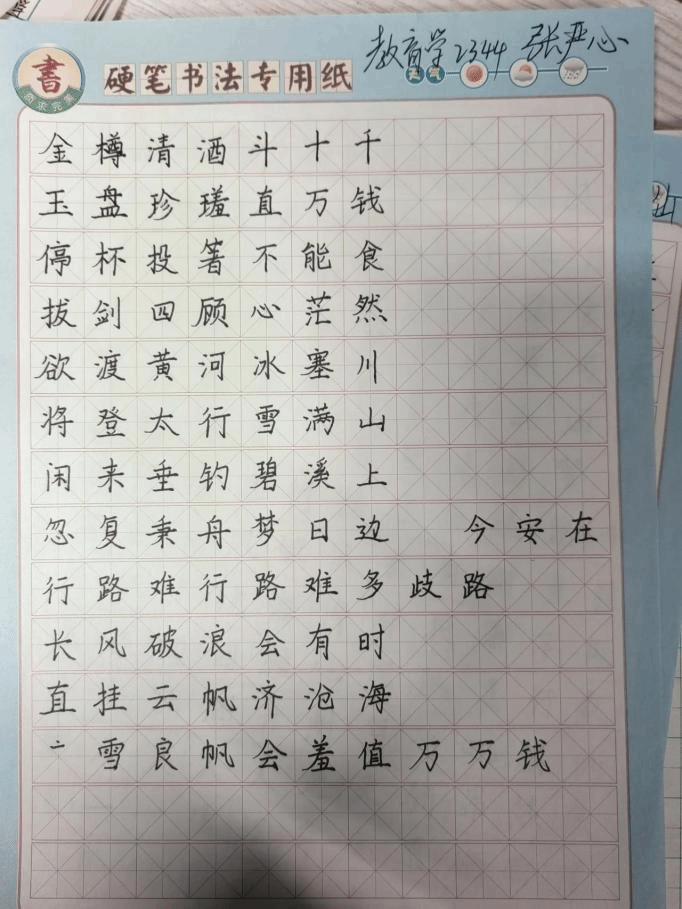 教育学2344 张严心
書
硬笔书法专用纸
天气
金樽清酒斗十千
玉盘珍瑾直万钱
停杯投箸不能食
拔剑四顾心茫然
欲渡黄河冰塞川
将登太行雪满山
闲来垂钓碧溪上
忽复乘舟梦日边 今安在
行路难行路难多歧路
长风破浪会有时
直挂云帆济沧海
亠雪良帆会羞值万万钱